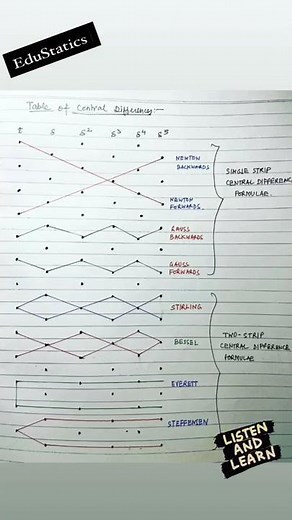 EduStatics
Table of Central Difference:-
δ δ² δ³ δ⁴ δ⁵
NEWTON
BACKWARDS
SINGLE STRIP
CENTRAL DIFFERENCE
FORMULAE.
NEWTON
FORWARDS.
GAUSS
BACKWARDS
GAUSS
FORWARDS
STIRLING
BESSEL
TWO-STRIP
CENTRAL DIFFERENCE
FORMULAE
EVERETT
STEFFENSEN
LISTEN
AND
LEARN